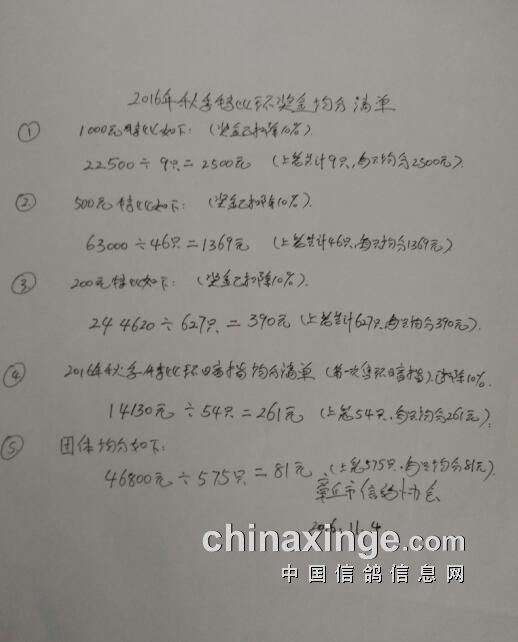 2016年秋季特比环奖金均分清单
① 1000元特比如下:(奖金已扣除10%).
22500÷9只=2500元 (上笼共计9只,每只均分2500元).
② 500元特比如下:(奖金已扣除10%).
63000÷46只=1369元 (上笼共计46只,每只均分1369元)
③ 200元特比如下:(奖金已扣除10%).
244620÷627只=390元(上笼共计627只,每只均分390元).
④ 2016年秋季特比环暗插均分清单(第一次售环暗插).已扣除10%.
14130元÷54只=261元 (上笼54只,每只均分261元);
⑤ 团体均分如下:
46800元÷575只=81元.(上笼575只,每只均分81元).
章丘市信鸽协会
2016.11.4
chinaxinge.com
中国信鸽信息网